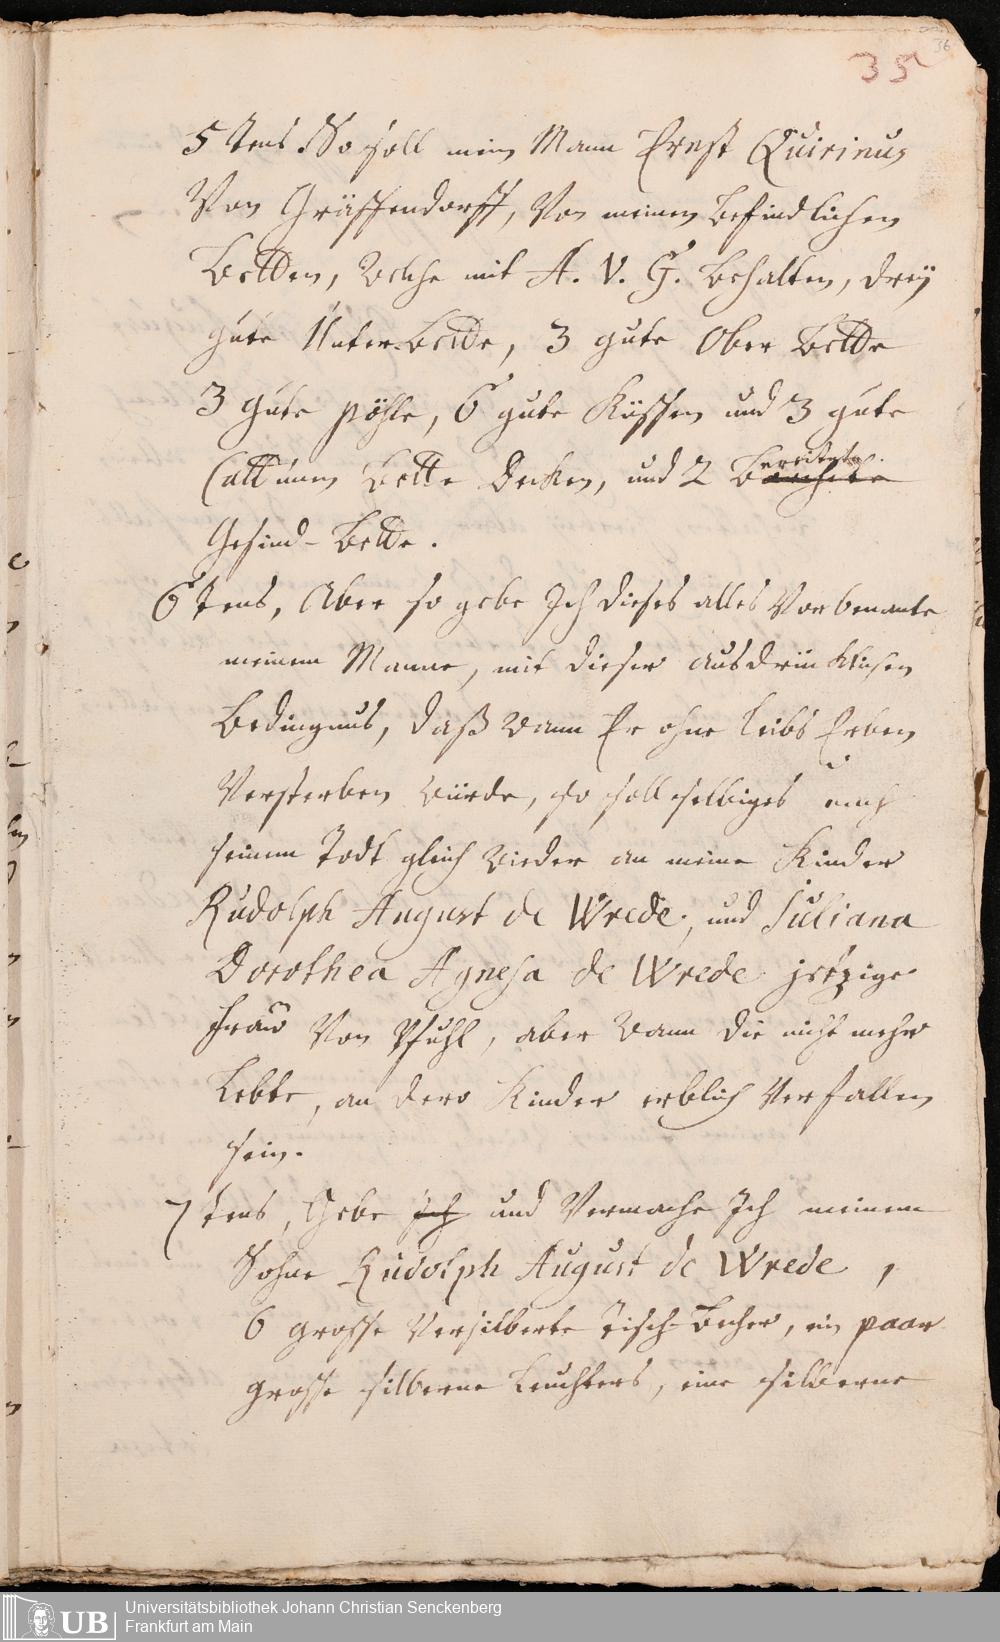 36
35
5 tens So soll mein Mann Ernst Quirinus
Von Gräffendorff, Von meinen befindlichen
Betten, Welche mit A. V. G. behalten, drey
gute Unter-bette, 3 gute Ober Bette
3 gute pöhle, 6 gute Küssen und 3 gute
Cattunen Bette Decken, und 2 bereitete
Gesind-Bette.
6 tens, Aber so gebe Ich dieses alles Vorbenante
meinem Manne, mit dieser ausdrücklichen
Bedingnus, daß wann Er ohne leibs Erben
Versterben würde, so soll selbiges nach
seinem Todt gleich wieder an meine Kinder
Rudolph August de Wrede, und Juliana
Dorothea Agnesa de Wrede jetzige
Frau Von Pfuhl, aber wann die nicht mehr
Lebte, an dero Kinder erblich Verfallen
sein.
7 tens, Gebe ich und Vermache Ich meinem
Sohne Rudolph August de Wrede,
6 grosse Versilberte Tisch-Becher, ein paar
grosse silberne Leuchters, eine silberne
UB
Universitätsbibliothek Johann Christian Senckenberg
Frankfurt am Main